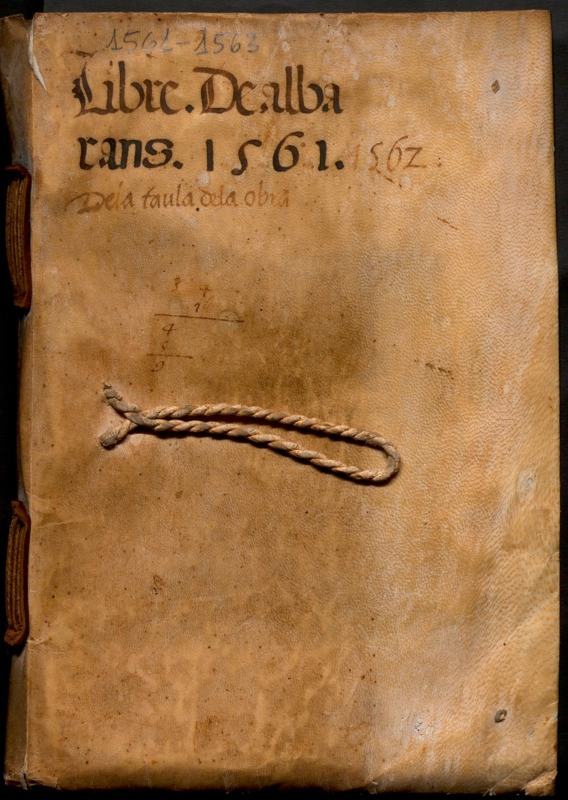 1561-1563
Libre. De.alba
rans. 1561. 1562
Dela taula dela obra
4
1
4
9